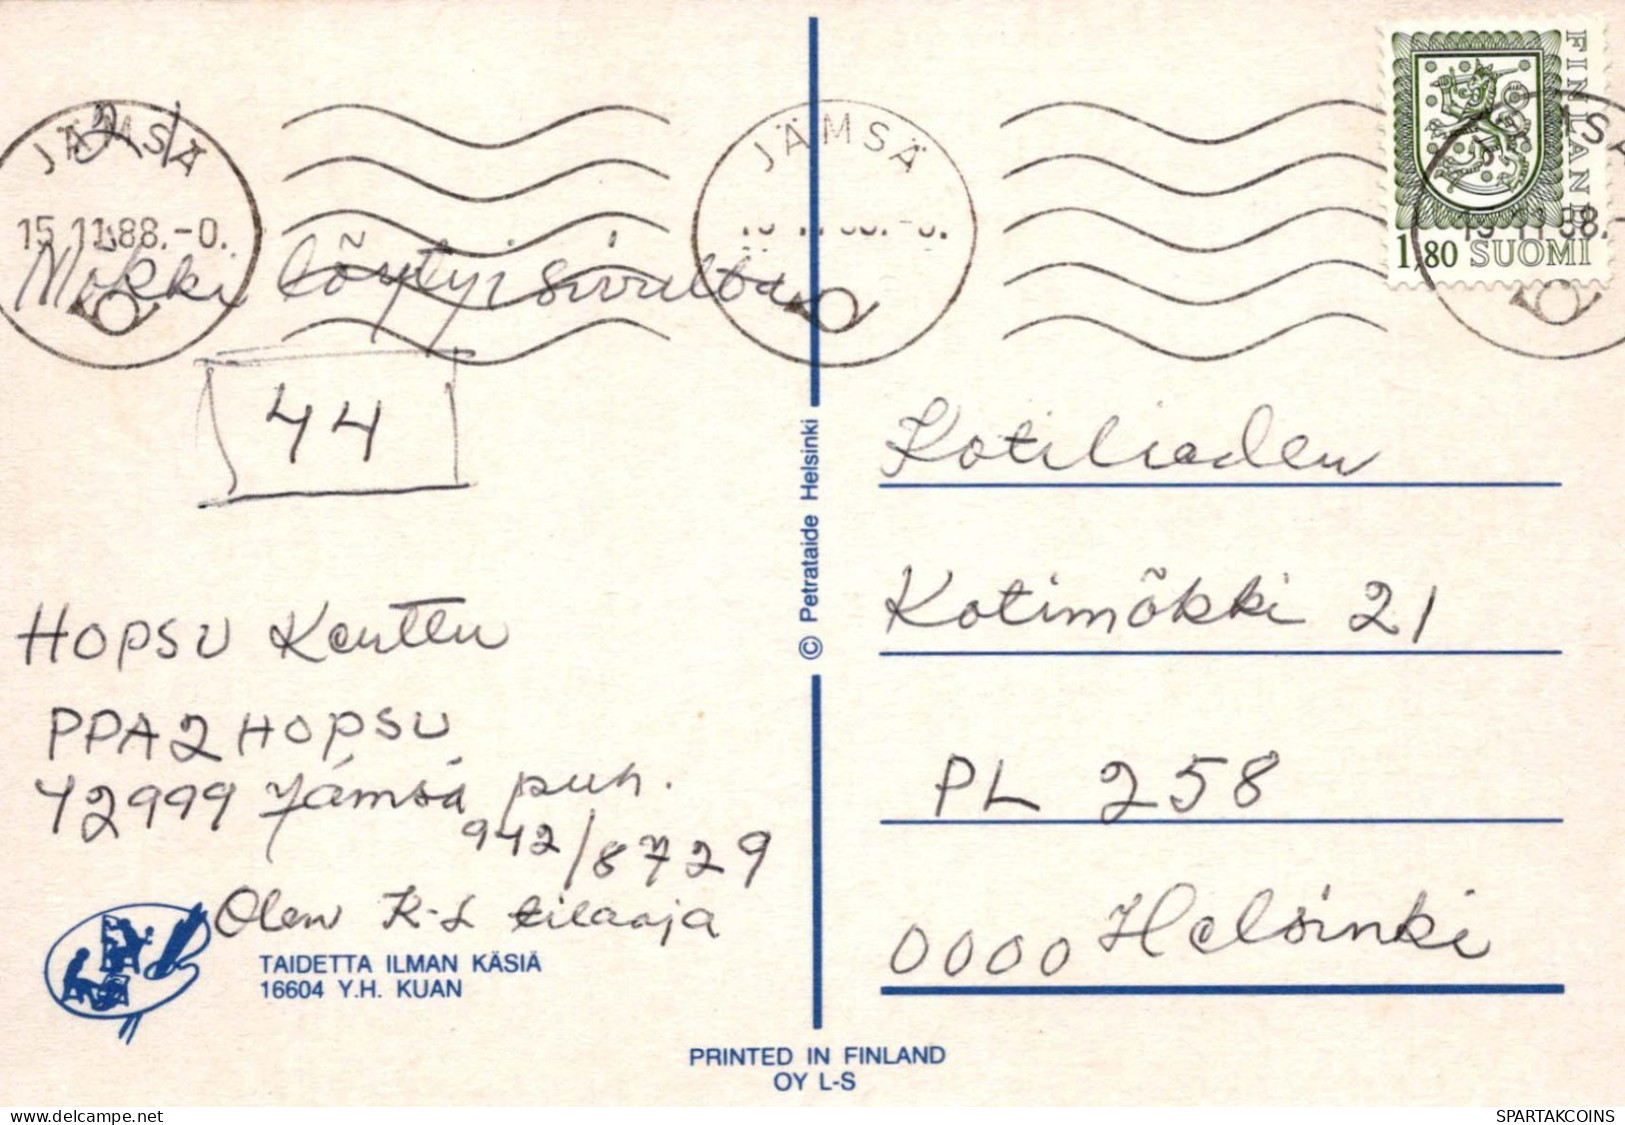 21
JÄMSÄ
15.11.88.-0.
Mökki löytyi sivulta
44
HOPSU Kerttu
PPA 2 HOPSU
42999 Jämsä puh.
942/8729
Olen K-L tilaaja
TAIDETTA ILMAN KÄSIÄ
16604 Y.H. KUAN
© Petrataide Helsinki
PRINTED IN FINLAND
OY L-S
JÄMSÄ
FINLAND
1,80 SUOMI
Kotilieden
Kotimõkki 21
PL 258
0000 Helsinki
delcampe.net
SPARTAKCOINS